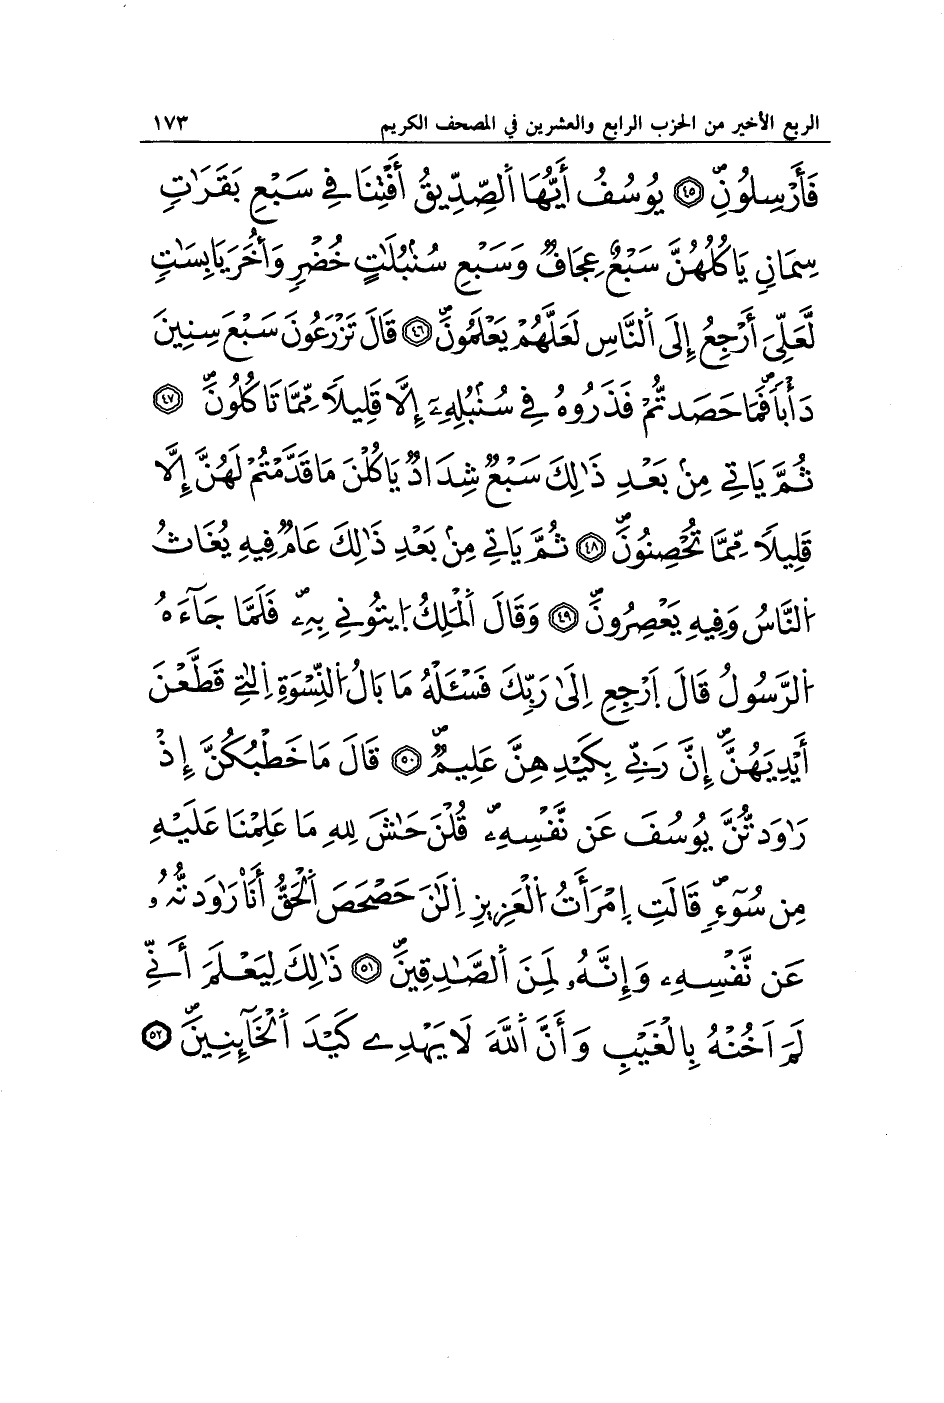 الربع الأخير من الحزب الرابع والعشرين في المصحف الكريم ١٧٣
فَأَرْسِلُونِ ۝٤٥ يُوسُفُ أَيُّهَا اَ۬لصِّدِّيقُ أَفْتِنَا فِے سَبْعِ بَقَرَٰتٖ
سِمَانٖ يَاكُلُهُنَّ سَبْعٌ عِجَافٞ وَسَبْعِ سُنۢبُلَٰتٍ خُضْرٖ وَأُخَرَ يَابِسَٰتٖ
لَّعَلِّيَ أَرْجِعُ إِلَى اَ۬لنَّاسِ لَعَلَّهُمْ يَعْلَمُونَ ۝٤٦ قَالَ تَزْرَعُونَ سَبْعَ سِنِينَ
دَأْباٗ فَمَا حَصَدتُّمْ فَذَرُوهُ فِے سُنۢبُلِهِۦٓ إِلَّا قَلِيلاٗ مِّمَّا تَاكُلُونَ ۝٤٧
ثُمَّ يَاتِے مِنۢ بَعْدِ ذَٰلِكَ سَبْعٞ شِدَادٞ يَاكُلْنَ مَا قَدَّمْتُمْ لَهُنَّ إِلَّا
قَلِيلاٗ مِّمَّا تُحْصِنُونَ ۝٤٨ ثُمَّ يَاتِے مِنۢ بَعْدِ ذَٰلِكَ عَامٞ فِيهِ يُغَاثُ
اُ۬لنَّاسُ وَفِيهِ يَعْصِرُونَ ۝٤٩ وَقَالَ اَ۬لْمَلِكُ اُ۪يتُونِے بِهِۦ فَلَمَّا جَآءَهُ
اُ۬لرَّسُولُ قَالَ اَ۪رْجِعِ اِلَىٰ رَبِّكَ فَسْـَٔلْهُ مَا بَالُ اُ۬لنِّسْوَةِ اِ۬لتِے قَطَّعْنَ
أَيْدِيَهُنَّ إِنَّ رَبِّے بِكَيْدِهِنَّ عَلِيمٞ ۝٥٠ قَالَ مَا خَطْبُكُنَّ إِذْ
رَٰوَدتُّنَّ يُوسُفَ عَن نَّفْسِهِۦ قُلْنَ حَٰشَ لِلهِ مَا عَلِمْنَا عَلَيْهِ
مِن سُوٓءٖ قَالَتِ اِ۪مْرَأَتُ اُ۬لْعَزِيزِ اِ۬لَٰنَ حَصْحَصَ اَ۬لْحَقُّ أَنَا رَٰوَدتُّهُۥ
عَن نَّفْسِهِۦ وَإِنَّهُۥ لَمِنَ اَ۬لصَّٰدِقِينَ ۝٥١ ذَٰلِكَ لِيَعْلَمَ أَنِّے
لَمَ اَخُنْهُ بِالْغَيْبِ وَأَنَّ اَ۬للَّهَ لَا يَهْدِے كَيْدَ اَ۬لْخَآئِنِينَ ۝٥٢